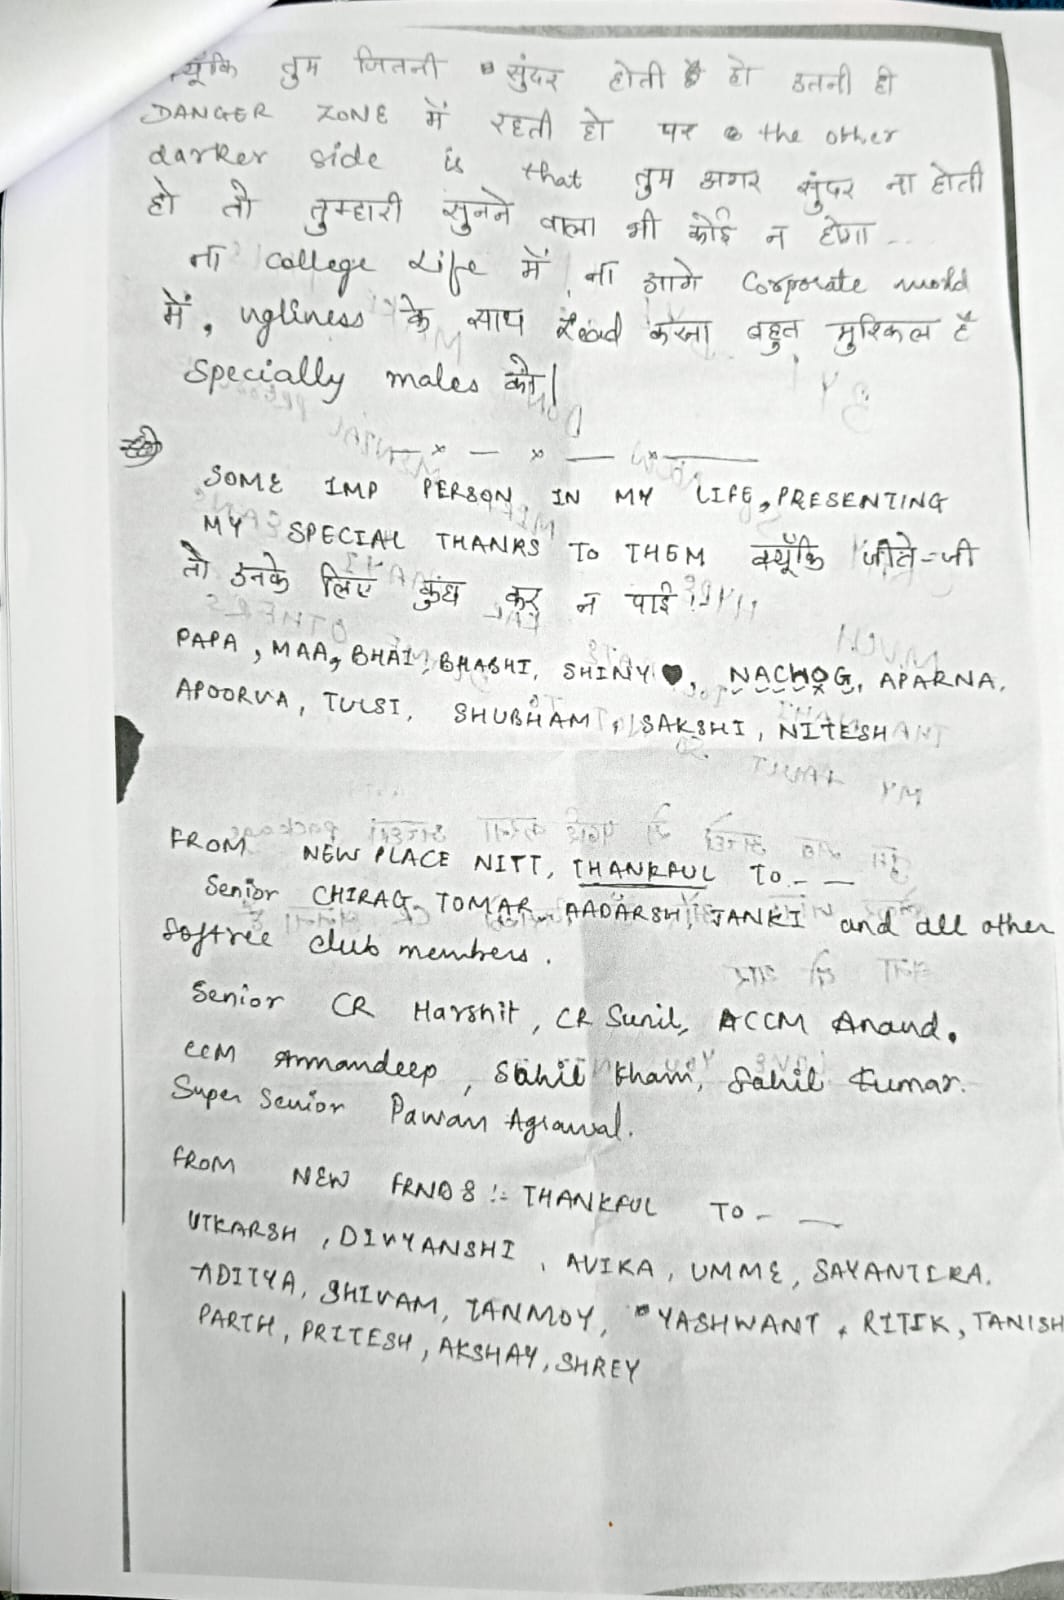 क्यूंकि तुम जितनी सुंदर होती हो उतनी ही
DANGER ZONE में रहती हो पर the other
darker side is that तुम अगर सुंदर ना होती
हो तो तुम्हारी सुनने वाला भी कोई न होगा ...
ना college life में, ना आगे Corporate world
में, ugliness के साथ lead करना बहुत मुश्किल है
Specially males को|
SOME IMP PERSON IN MY LIFE, PRESENTING
MY SPECIAL THANKS TO THEM क्यूँकि जीते-जी
तो उनके लिए कुछ कर न पाई!
PAPA, MAA, BHAI, BHABHI, SHINY ♥, NACHOG, APARNA,
APOORVA, TULSI, SHUBHAM, SAKSHI, NITESH
FROM NEW PLACE NITT, THANKFUL TO - -
Senior CHIRAG TOMAR, AADARSH, JANKI and all other
Softree club members.
Senior CR Harshit, CR Sunil, ACCM Anand.
CCM Amandeep, Sahil Kham, Sahil Kumar.
Super Senior Pawan Agrawal.
FROM NEW FRNDS :- THANKFUL TO - -
UTKARSH, DIVYANSHI, AVIKA, UMME, SAYANTIKA.
ADITYA, SHIVAM, TANMOY, YASHWANT, RITIK, TANISH
PARTH, PRITESH, AKSHAY, SHREY